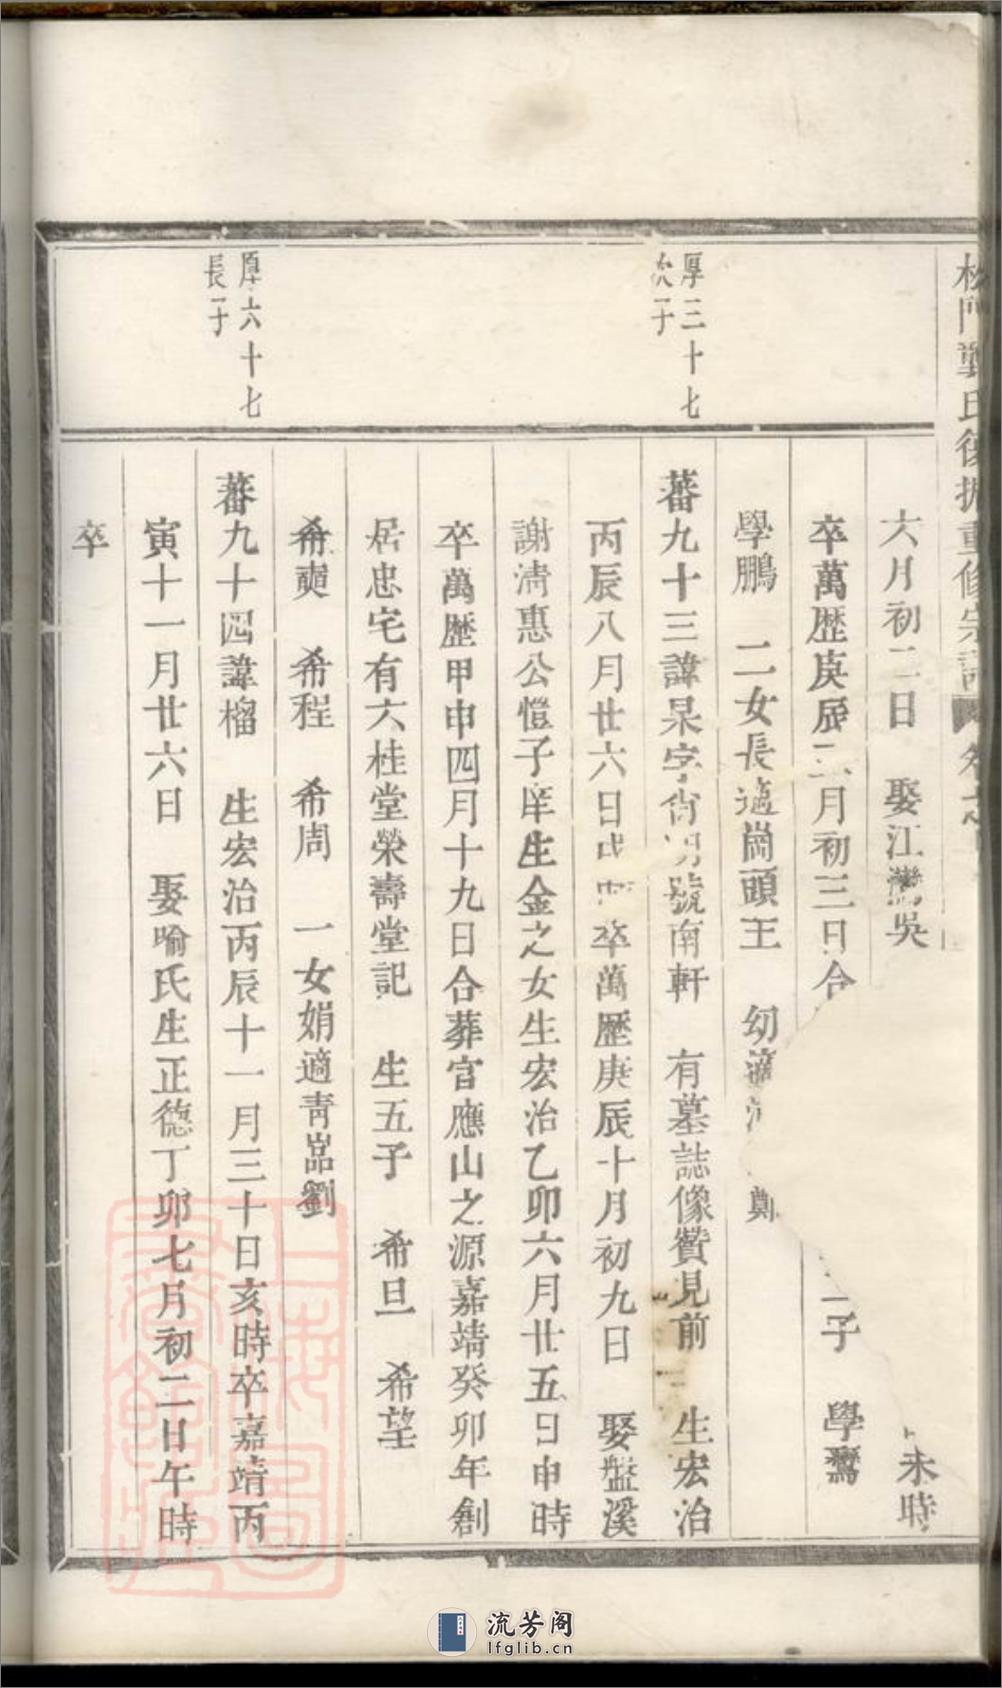 龔氏後振重修宗譜
六月初二日 娶江灣吳 未時
卒萬歴庚辰 月初三日合 子 學鸞
學鵬 二女長適崗頭王 幼適 鄭
厚三十七
次子
蕃九十三諱杲字 號南軒 有墓誌像贊見前 生宏治
丙辰八月廿六日戌 卒萬歴庚辰十月初九日 娶盤溪
謝淸惠公愷子庠生金之女生宏治乙卯六月廿五日申時
卒萬歴甲申四月十九日合葬官應山之源嘉靖癸卯年創
居忠宅有六桂堂榮壽堂記 生五子 希旦 希望
希奭 希程 希周 一女娟適靑嵓劉
厚六十七
長子
蕃九十四諱榴 生宏治丙辰十一月三十日亥時卒嘉靖丙
寅十一月廿六日 娶喻氏生正德丁卯七月初二日午時
卒
流芳阁
lfglib.cn